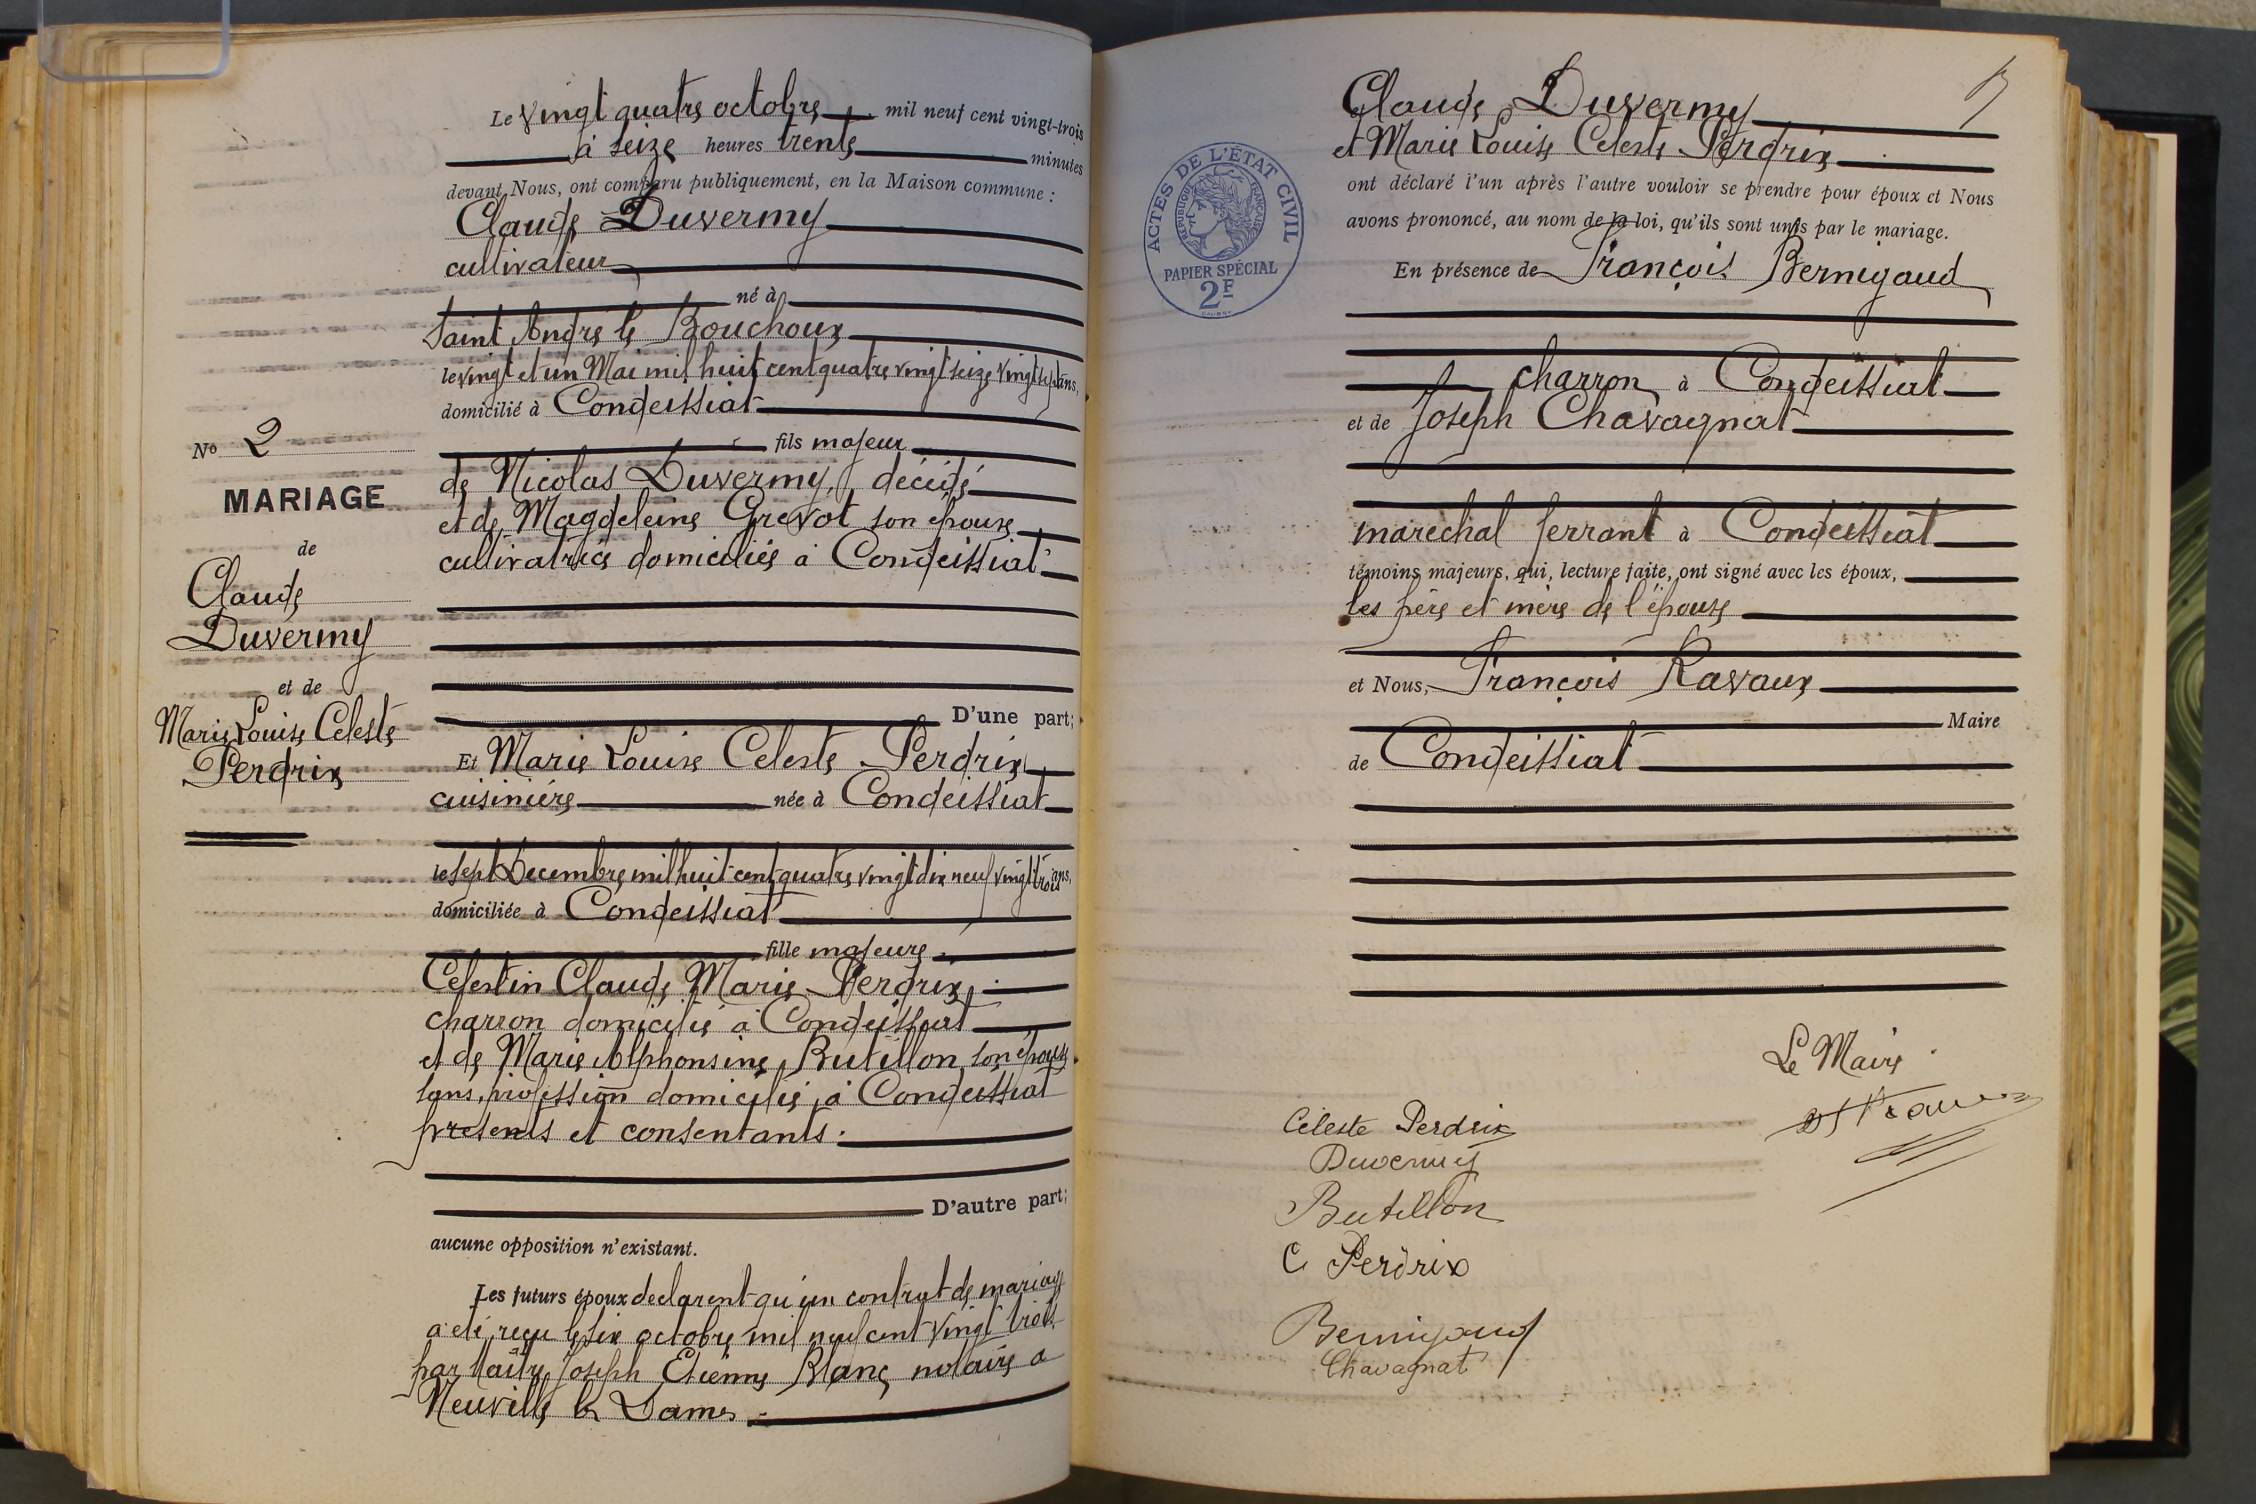 Le vingt quatre octobre mil neuf cent vingt-trois
à seize heures trente minutes
devant Nous, ont comparu publiquement, en la Maison commune :
Claude Duvermy
cultivateur
né à
Saint André le Bouchoux
le vingt et un Mai mil huit cent quatre vingt seize vingt sept ans,
domicilié à Condeissiat
fils majeur
de Nicolas Duvermy, décédé
et de Magdeleine Grevot son épouse
cultivatrice domiciliés à Condeissiat
D'une part;
No 2
MARIAGE
de
Claude
Duvermy
et de
Marie Louise Celeste
Perdrix
Et Marie Louise Celeste Perdrix
cuisinière née à Condeissiat
le sept Decembre mil huit cent quatre vingt dix neuf vingt trois ans,
domiciliée à Condeissiat
fille majeure
Celestin Claude Marie Perdrix
charron domicilié à Condeissiat
et de Marie Alphonsine Butillon son épouse
sans profession domiciliés à Condeissiat
présents et consentants.
D'autre part;
aucune opposition n'existant.
Les futurs époux declarent qu'un contrat de mariage
a été reçu le six octobre mil neuf cent vingt trois
par Maître Joseph Etienne Blanc notaire a
Neuville les Dames
Claude Duvermy
et Marie Louise Celeste Perdrix
ont déclaré l'un après l'autre vouloir se prendre pour époux et Nous
avons prononcé, au nom de la loi, qu'ils sont unis par le mariage.
En présence de François Bernigaud
charron à Condeissiat
et de Joseph Chavagnat
maréchal ferrant à Condeissiat
témoins majeurs, qui, lecture faite, ont signé avec les époux,
les père et mère de l'épouse
et Nous, François Ravaux
Maire
de Condeissiat
ACTES DE L'ÉTAT CIVIL
RÉPUBLIQUE FRANÇAISE
PAPIER SPÉCIAL
2F
Le Maire
Céleste Perdrix
Duvermy
Butillon
C Perdrix
Bernigaud
Chavagnat